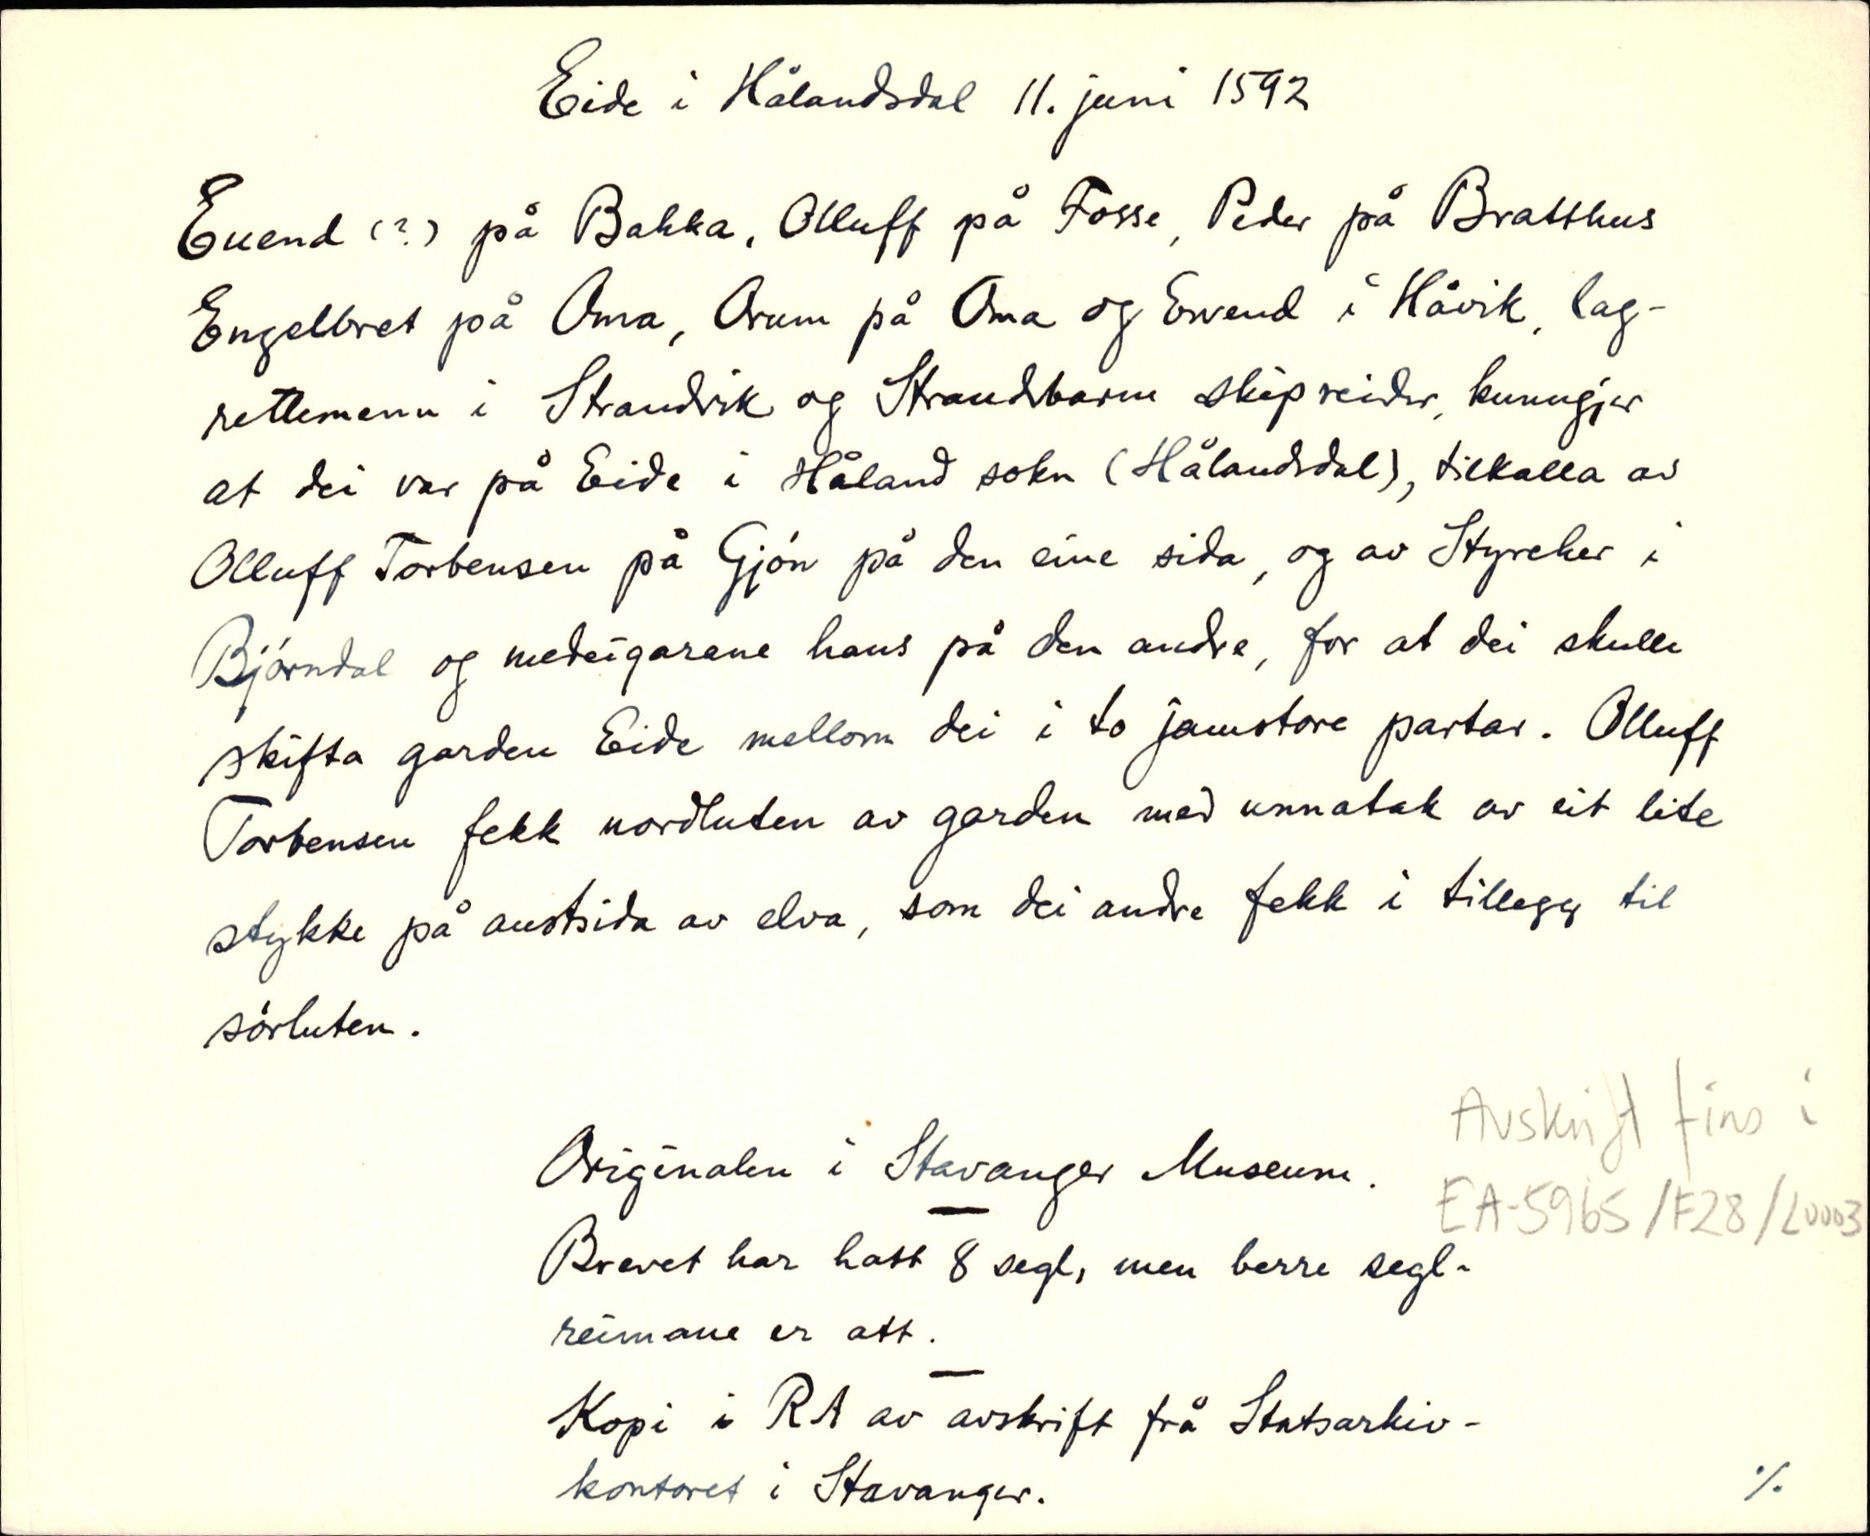 Eide i Hålandsdal 11. juni 1592
Euend (?) på Bakka, Olluff på Fosse, Peder på Bratthus
Engelbret på Oma, Orum på Oma og Ewend i Håvik, lag-
rettemenn i Strandvik og Strandbarm skipreider, kunngjer
at dei var på Eide i Håland sokn (Hålandsdal), tilkalla av
Olluff Torbensen på Gjøn på den eine sida, og av Styrcker i
Bjørndal og medeigarane hans på den andre, for at dei skulle
skifta garden Eide mellom dei i to jamstore partar. Olluff
Torbensen fekk nordluten av garden med unnatak av eit lite
stykke på austsida av elva, som dei andre fekk i tillegg til
sørluten.
Avskrift fins i
EA-5965/F28/L0003
Originalen i Stavanger Museum.
Brevet har hatt 8 segl, men berre segl-
reimane er att.
Kopi i RA av avskrift frå Statsarkiv-
kontoret i Stavanger.
%